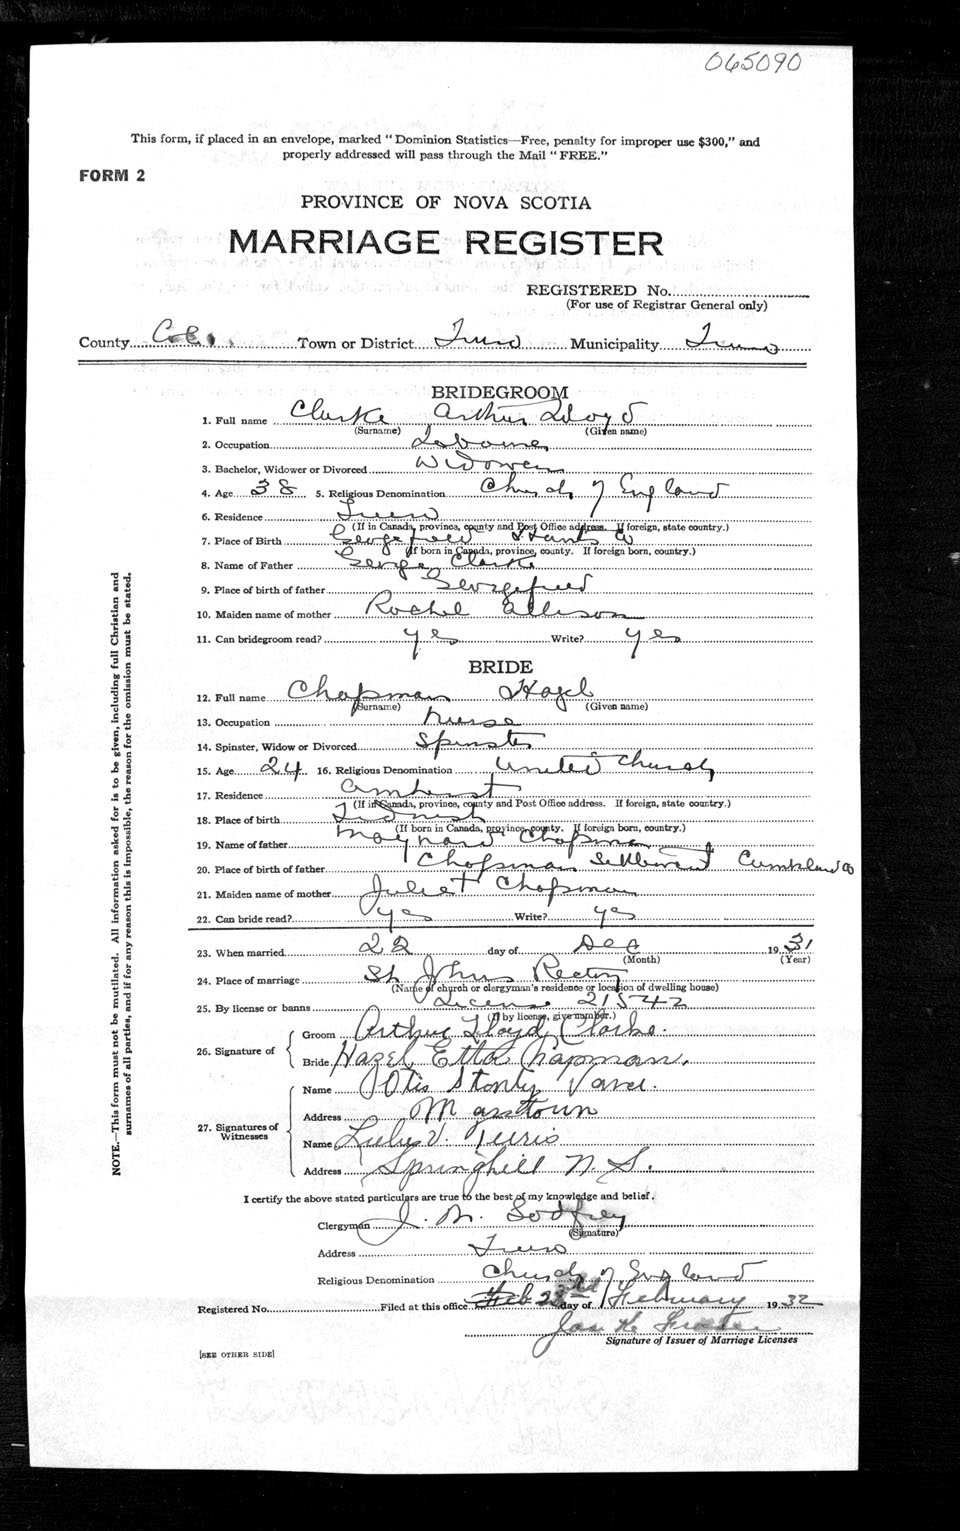 065090
This form, if placed in an envelope, marked "Dominion Statistics—Free, penalty for improper use $300," and
properly addressed will pass through the Mail "FREE."
FORM 2
PROVINCE OF NOVA SCOTIA
MARRIAGE REGISTER
REGISTERED No.
(For use of Registrar General only)
County Col. Town or District Truro Municipality Truro
BRIDEGROOM
1. Full name Clarke Arthur Lloyd
(Surname) (Given name)
2. Occupation Labourer
3. Bachelor, Widower or Divorced Widower
4. Age 38 5. Religious Denomination Church of England
6. Residence Truro
(If in Canada, province, county and Post Office address. If foreign, state country.)
7. Place of Birth Georgefield Hants Co
(If born in Canada, province, county. If foreign born, country.)
8. Name of Father George Clarke
9. Place of birth of father Georgefield
10. Maiden name of mother Rachel Ellison
11. Can bridegroom read? yes Write? yes
BRIDE
12. Full name Chapman Hazel
(Surname) (Given name)
13. Occupation nurse
14. Spinster, Widow or Divorced Spinster
15. Age 24 16. Religious Denomination United Church
17. Residence Amherst
(If in Canada, province, county and Post Office address. If foreign, state country.)
18. Place of birth Tidnish
(If born in Canada, province, county. If foreign born, country.)
19. Name of father Maynard Chapman
20. Place of birth of father Chapman Settlement Cumberland Co
21. Maiden name of mother Juliet Chapman
22. Can bride read? yes Write? yes
23. When married 22 day of Dec 1931
(Month) (Year)
24. Place of marriage St Johns Rectory
(Name of church or clergyman's residence or location of dwelling house)
25. By license or banns License 21542
(If by license, give number.)
26. Signature of Groom Arthur Lloyd Clarke.
Bride Hazel Etta Chapman.
27. Signatures of Witnesses Name Otis Stanley Vance.
Address Masstown
Name Lulu V.
Address Springhill N. S.
I certify the above stated particulars are true to the best of my knowledge and belief.
Clergyman J. M. Godfrey
(Signature)
Address Truro
Religious Denomination Church of England
Registered No. Filed at this office Feb 23rd day of February 1932
Jas. K. Fraser
Signature of Issuer of Marriage Licenses
[SEE OTHER SIDE]
NOTE.—This form must not be mutilated. All information asked for is to be given, including full Christian and
surnames of all parties, and if for any reason this is impossible, the reason for the omission must be stated.